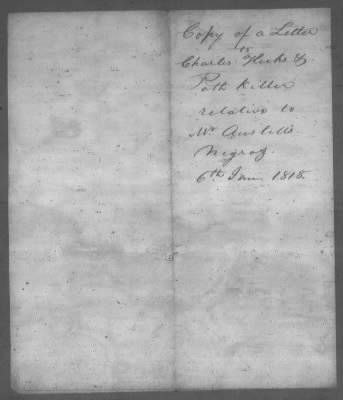 Copy of a Letter
to
Charles Hicks &
Path Killer
relative to
Mr Austill's
Negroes
6th June 1818.